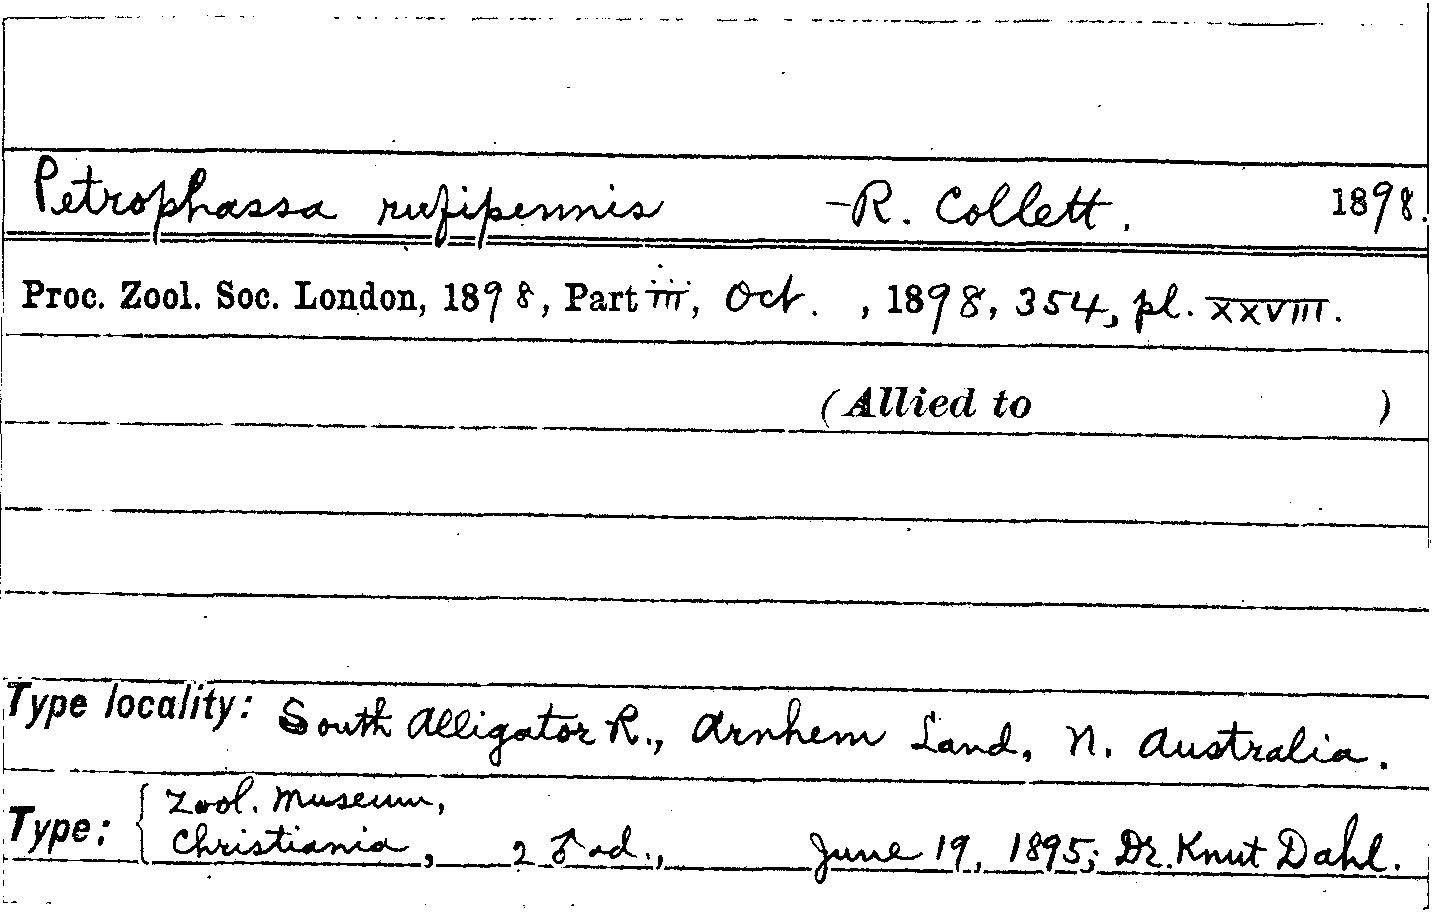 Petrophassa rufipennis –R. Collett. 1898.
Proc. Zool. Soc. London, 1898, Part iii, Oct. , 1898, 354, pl. XXVIII.
(Allied to )
Type locality: South Alligator R., Arnhem Land, N. Australia.
Type: { Zool. Museum,
Christiania, 2 ♂ ad., June 19, 1895; Dr. Knut Dahl.